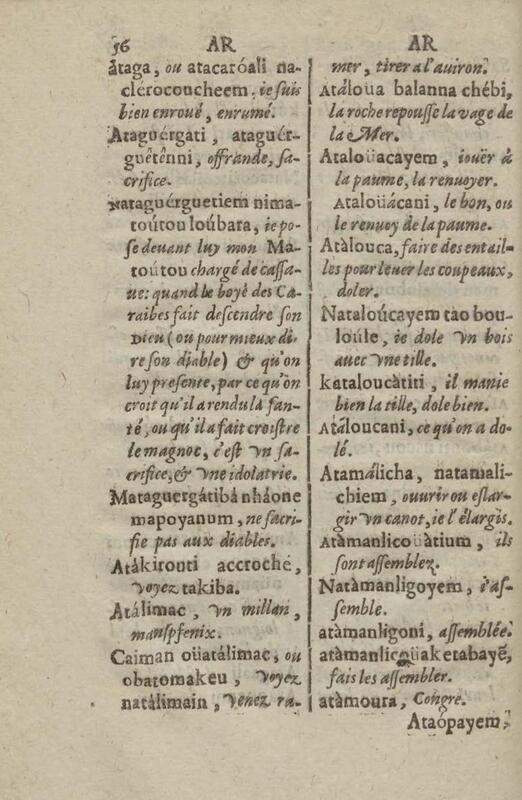 56 AR AR
átaga, ou atacaróali na-
clérocoucheem. ie suis
bien enroué, enrumé.
Ataguérgati, ataguér-
guêtênni, offrande, sa-
crifice.
Nataguérguetiem nima-
toútou loúbara, ie po-
se deuant luy mon Ma-
toútou chargé de cassa-
ue: quand le boyé des Ca-
raibes fait descendre son
DIEU (ou pour mieux di-
re son diable) & qu'on
luy presente, par ce qu'on
croit qu'il a rendu la san-
té, ou qu'il a fait croistre
le magnoc, c'est vn sa-
crifice, & vne idolatrie.
Mataguergátibá nháone
mapoyanum, ne sacri-
fie pas aux diables.
Atákirouti accroché,
voyez takiba.
Atálimac, vn millan,
mansfenix.
Caiman oüatálimac, ou
obatomakeu, voyez
natálimain, venez ra-
mer, tirer a l'auiron.
Atáloüa balanna chébi,
la roche repousse la vage de
la Mer.
Ataloüacayem, ioüer à
la paume, la renuoyer.
Atalouácani, le bon, ou
le renuoy de la paume.
Atàlouca, faire des entail-
les pour leuer les coupeaux,
doler.
Nataloúcayem tào bou-
loúle, ie dole vn bois
auec vne tille.
kataloucàtiti, il manie
bien la tille, dole bien.
Atáloucani, ce qu'on a do-
lé.
Atamálicha, natamali-
chiem, ouurir ou eslar-
gir vn canot, ie l'élargis.
Atàmanlicoüàtium, ils
sont assemblez.
Natàmanligoyem, i'as-
semble.
atàmanligoni, assemblée.
atàmanlicoüaketabayê,
fais les assembler.
atàmoura, Congre.
Ataópayem,